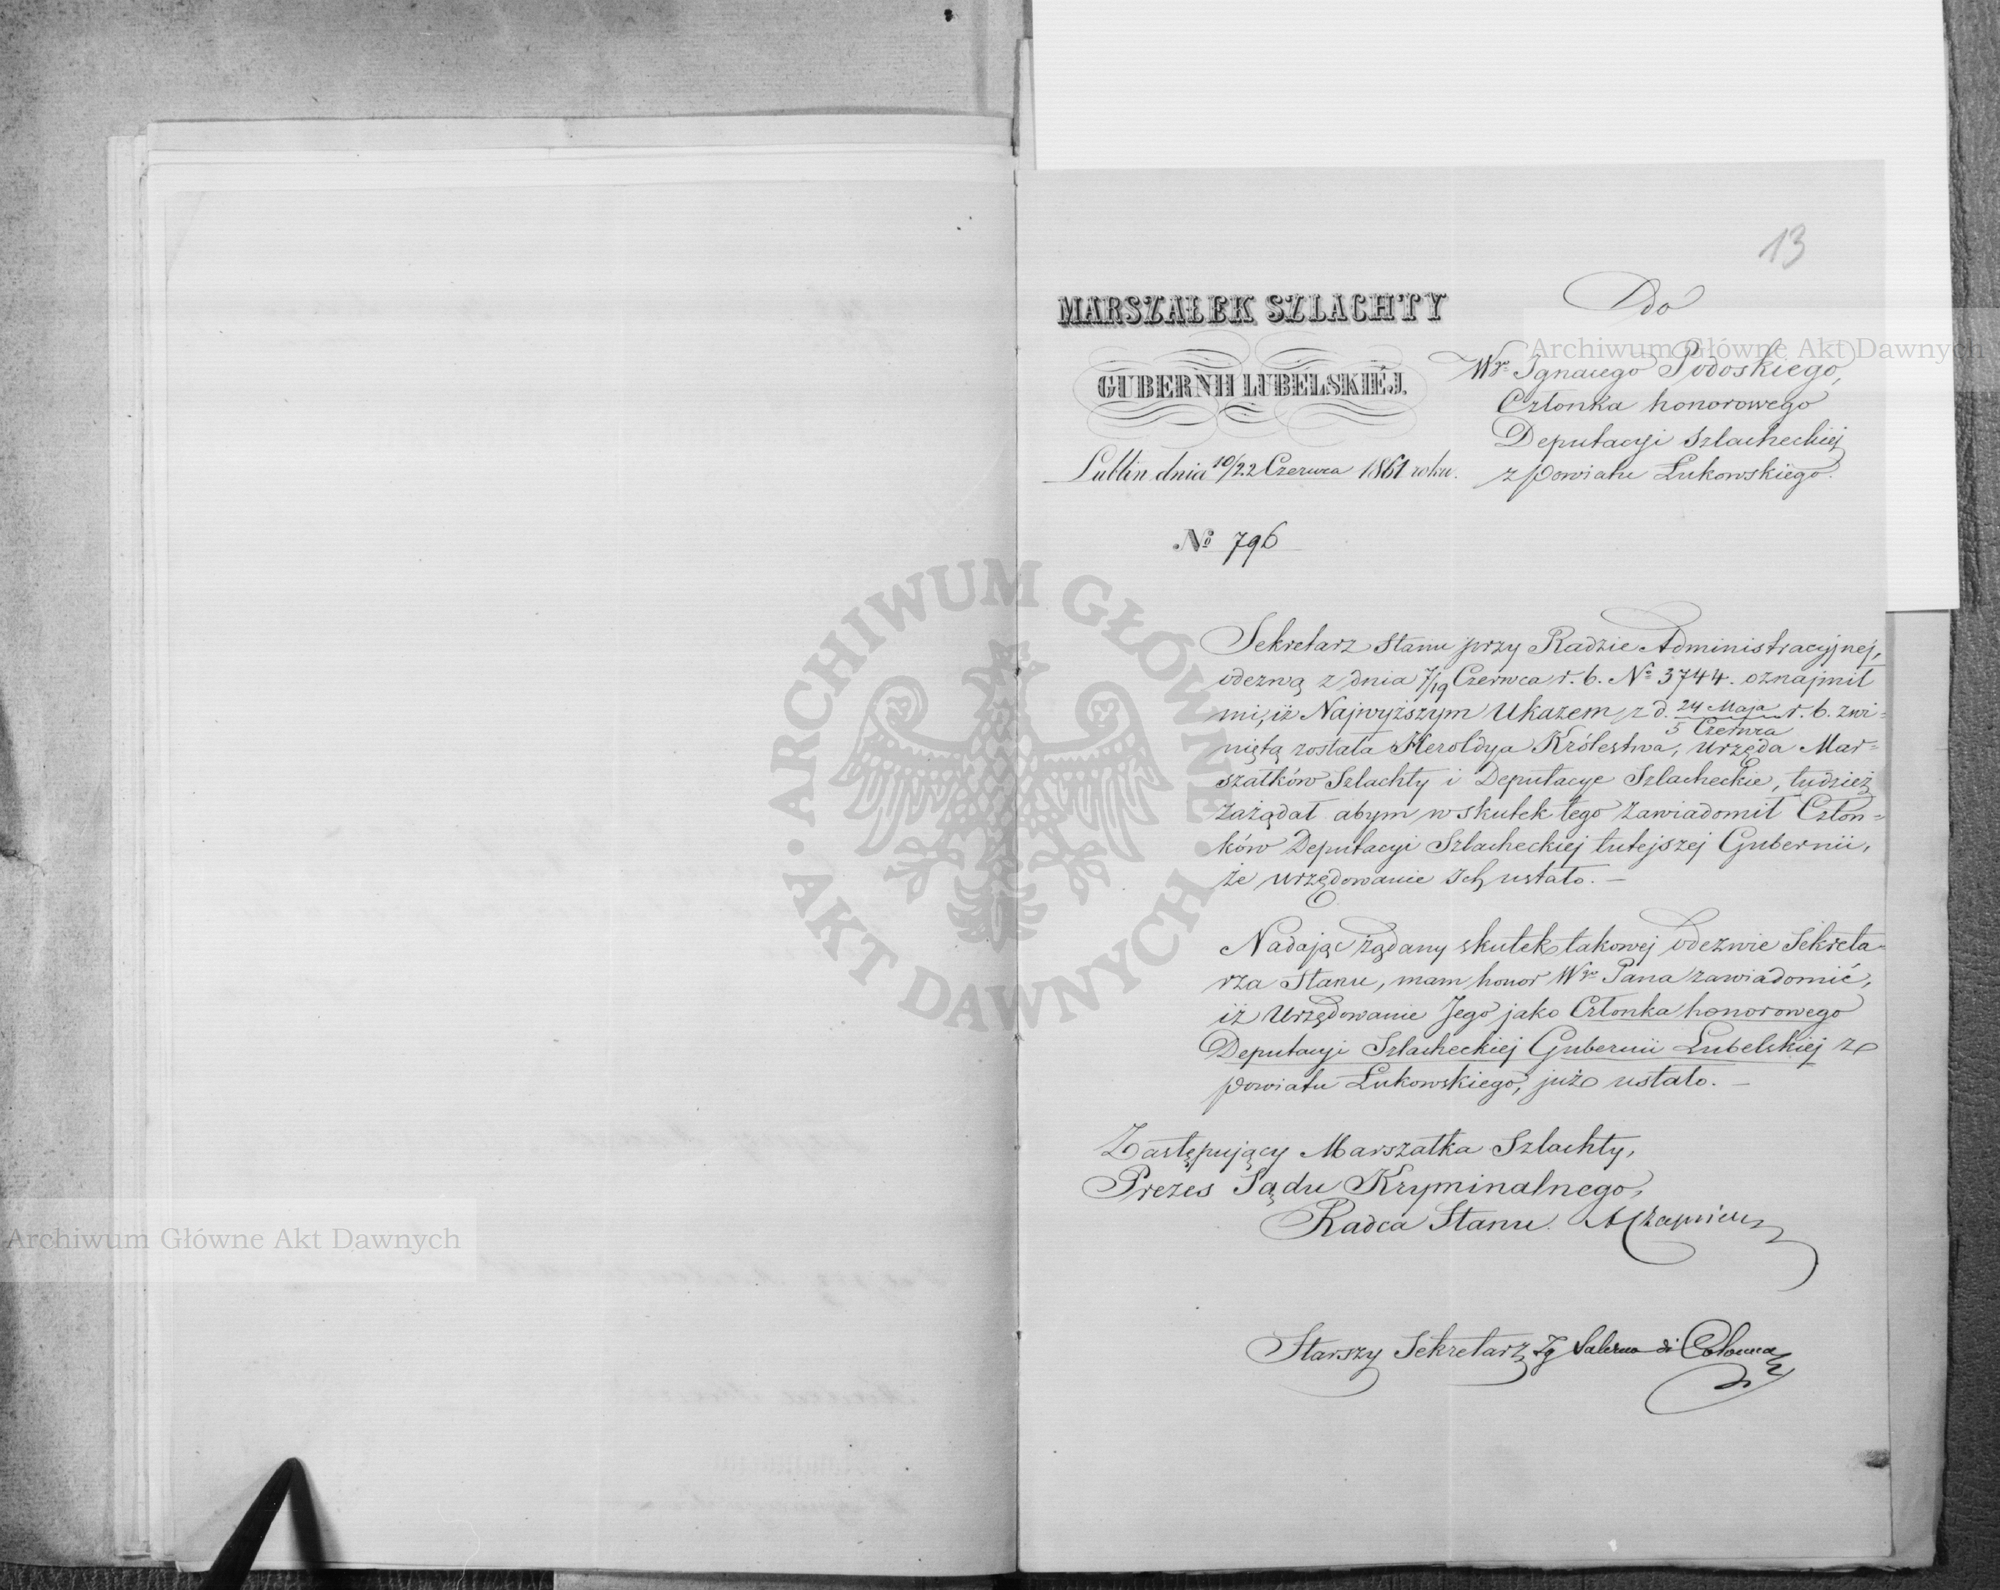 13
MARSZAŁEK SZLACHTY
GUBERNII LUBELSKIÉJ.
Lublin dnia 10/22 Czerwca 1861 roku.
№ 796
Do
Wgo Ignacego Podoskiego,
Członka honorowego
Deputacyi Szlacheckiej
z powiatu Łukowskiego.
Sekretarz Stanu przy Radzie Administracyjnej,
odezwą z dnia 7/19 Czerwca r. b. No 3744. oznajmił
mi, iż Najwyższym Ukazem z d. 24 Maja/5 Czerwca r. b. zwi-
niętą została Heroldya Królestwa, urzęda Mar-
szałków Szlachty i Deputacye Szlacheckie, tudzież
zażądał abym w skutek tego zawiadomił Człon-
ków Deputacyi Szlacheckiej tutejszej Gubernii,
że urzędowanie Ich ustało. –
Nadając żądany skutek takowej odezwie Sekreta-
rza Stanu, mam honor Wgo Pana zawiadomić,
iż Urzędowanie Jego jako Członka honorowego
Deputacyi Szlacheckiej Gubernii Lubelskiej z
powiatu Łukowskiego, już ustało. –
Zastępujący Marszałka Szlachty,
Prezes Sądu Kryminalnego,
Radca Stanu.
Starszy Sekretarz Ig Salerno di Colonna
ARCHIWUM GŁÓWNE
AKT DAWNYCH
Archiwum Główne Akt Dawnych
Archiwum Główne Akt Dawnych